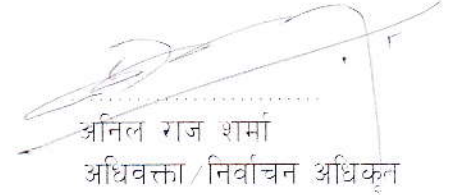 ....................
अनिल राज शर्मा
अधिवक्ता/निर्वाचन अधिकृत